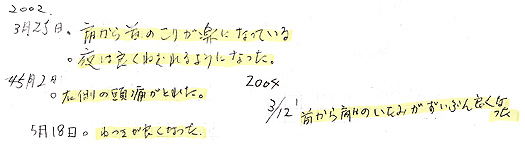 2002.
3月25日。肩から首のこりが楽になっている
。夜は良くねむれるようになった。
4月2日
。左側の頭痛がとれた。
2004
3/12 首から肩のいたみがずいぶん良くなった
5月18日。ねつきが良くなった。